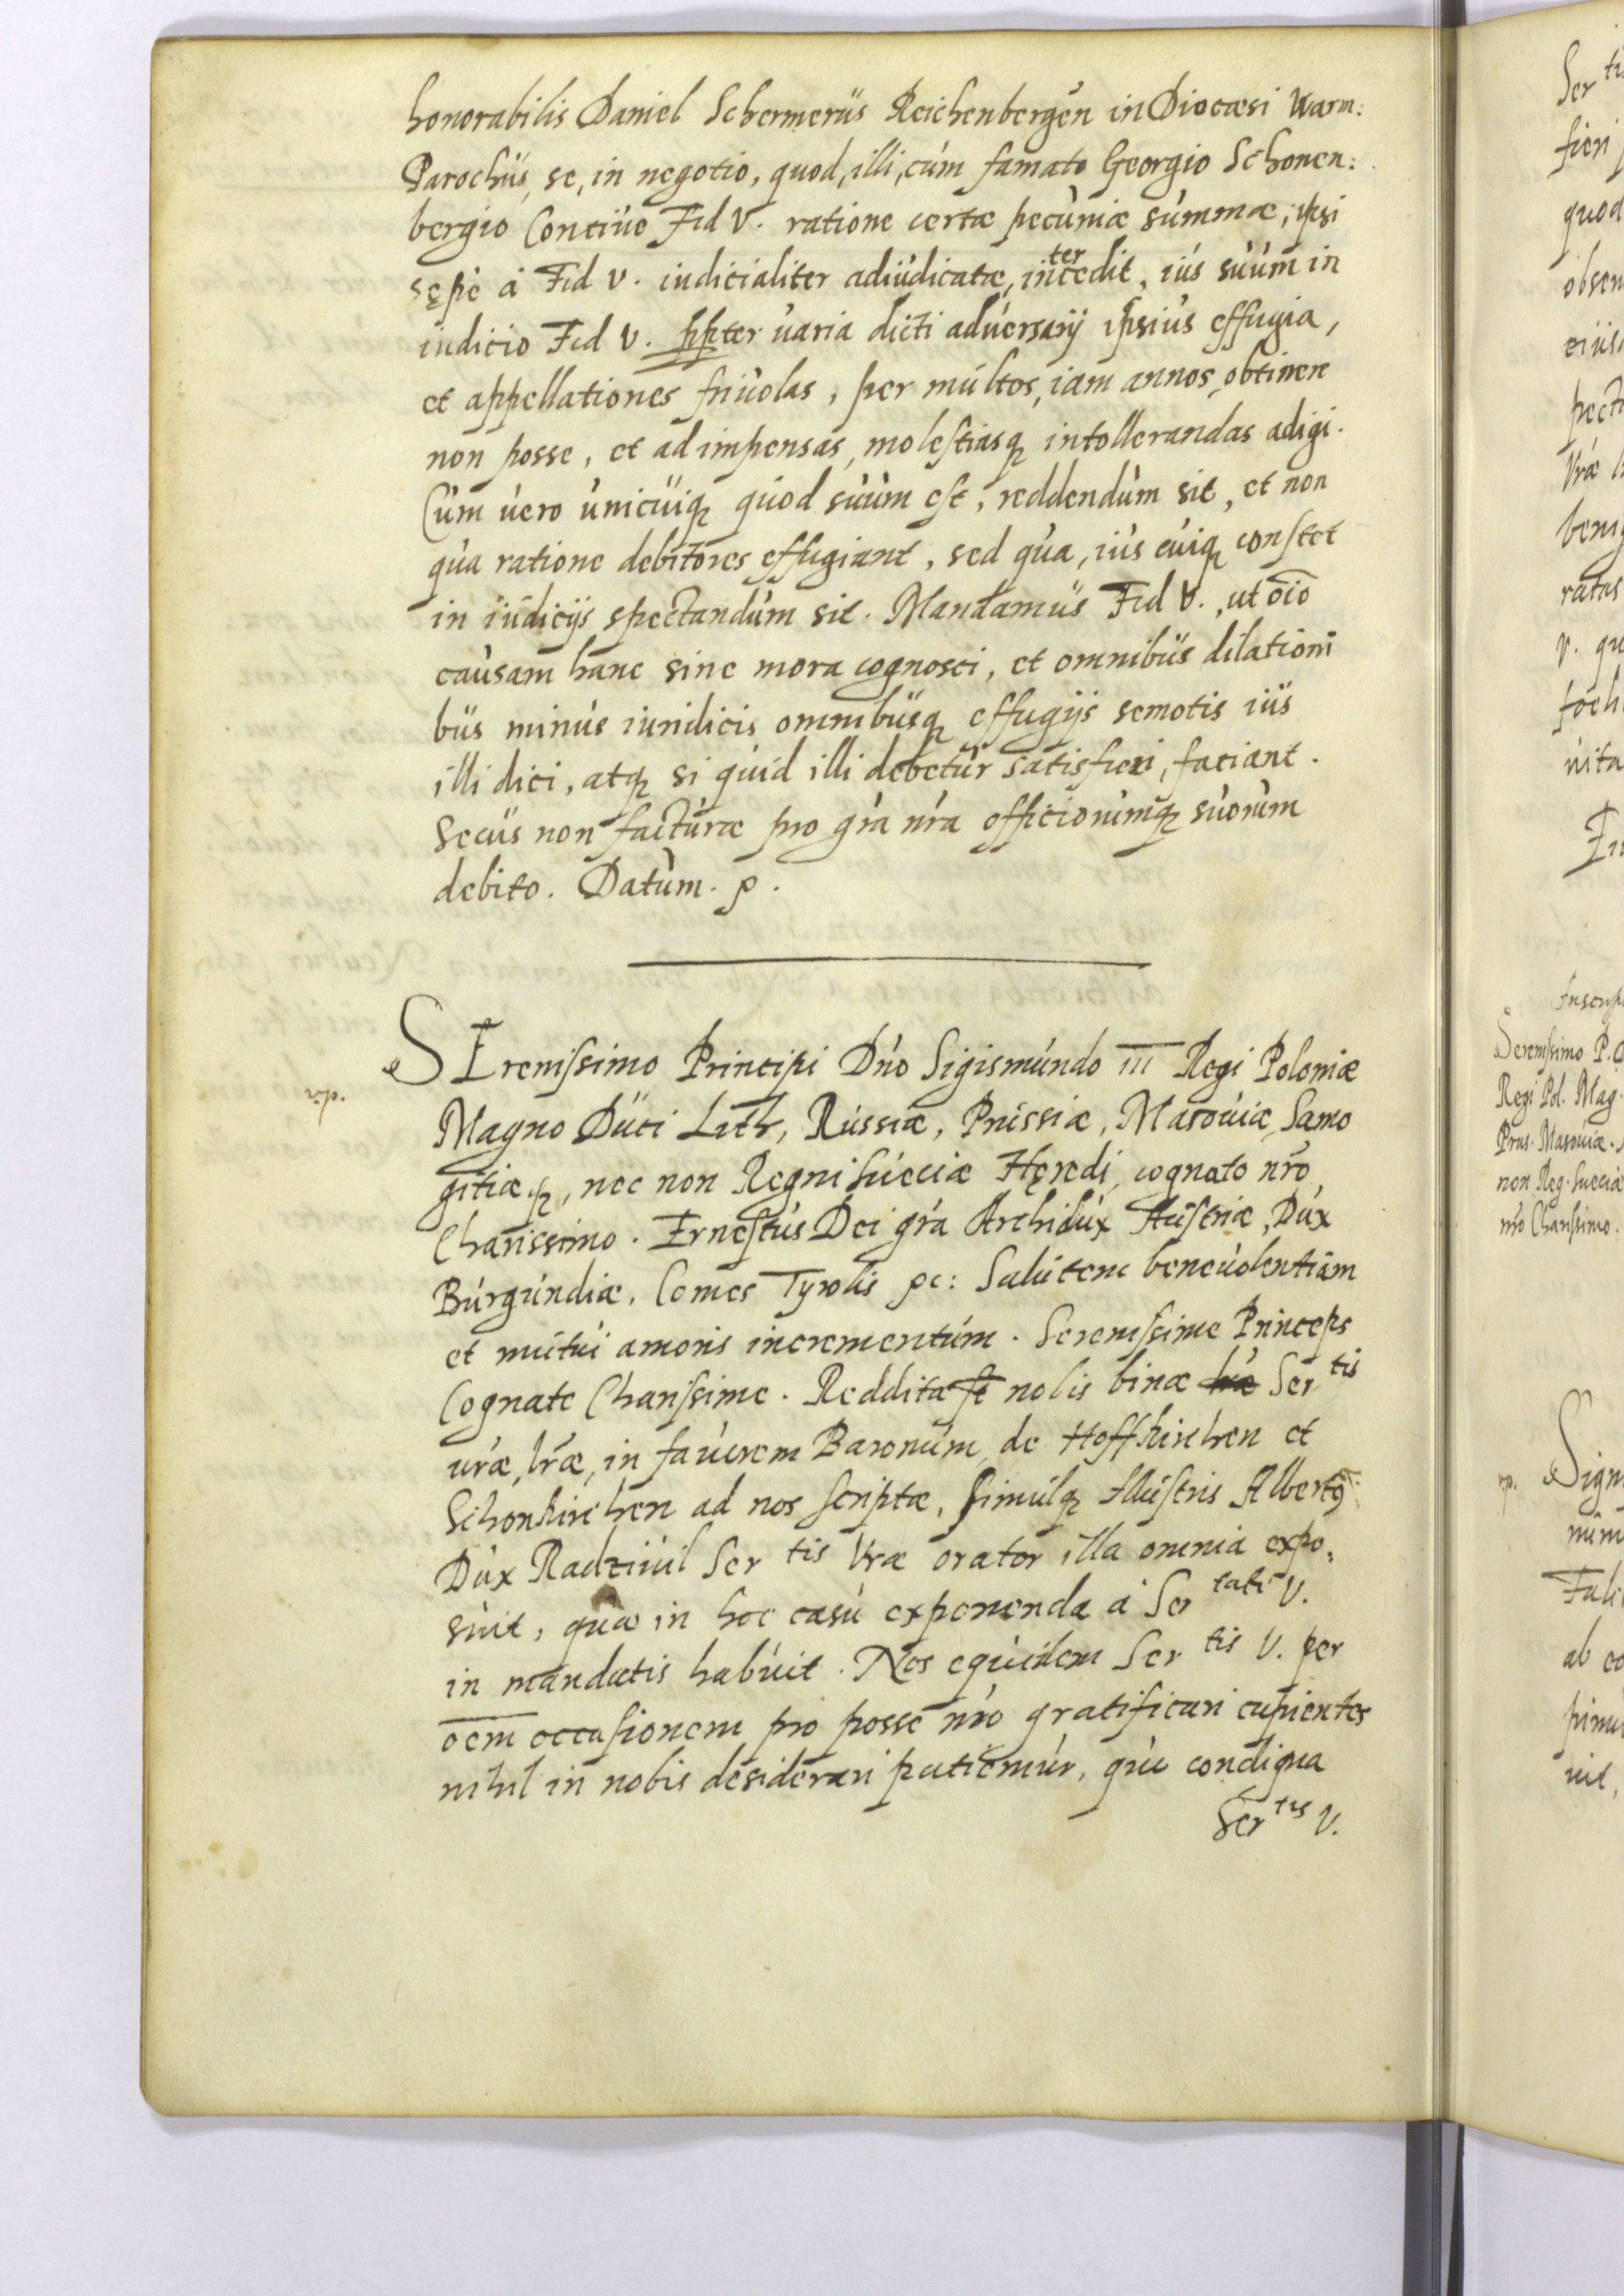 honorabilis Daniel Schermerüs Reichenbergēn in Diocæsi Warm:
Parochüs, se, in negotio, quod, illi, cúm famato Georgio Schonen:
bergio Conciúe Fid V. ratione certæ pecúniæ súmmæ, ipsi
sępè á Fid V. iudicialiter adiúdicatæ, intercedit, iús súúm in
iudicio Fid V. ppter uaria dicti adúersarij ipsiús effugia,
et appellationes friúolas, per múltos, iam annos, obtinere
non posse, et ad impensas, molestiasq intollerandas adigi.
Cúm úero únicúiq qúod súúm est, reddendúm sit, et non
qúa ratione debitores effugiant, sed qúa, iús cúiq constet
in iúdicijs spectandúm sit. Mandamüs Fid V., ut oīo
caúsam hanc sine mora cognosci, et omnibüs dilationi
büs minús iuridicis omnibúsq effugijs semotis iüs
illi dici, atq si qúid illi debetúr satisfieri, faciant.
Secüs non factúræ pro gŕa nŕa officiorúmq súorúm
debito. Datúm. p.
SErenissimo Principi Dńo Sigismúndo III Regi Poloniæ
Magno Düci Lith, Rússiæ, Prússiæ, Masoúiæ, Samo
gitiæq, nec non Regni Súeciæ Hęredi, cognato nŕo
Charissimo. Ernestús Dei gŕa Archidúx Aústriæ, Dúx
Búrgúndiæ, Comes Tyrolis pc: Salútem beneúolentiam
et mútúi amoris incrementúm. Serenissime Princeps
Cognate Charissime. Redditæ st nobis binæ lŕæ Ser tis
uŕæ, lŕæ, in faúorem Baronúm de Hoffkirchen et
Schonkirchen ad nos scriptæ, Simúlq Illústris Albertq
Dúx Radziúil Ser tis Vræ orator illa omnia expo:
súit, qúæ in hoc casú exponenda á Ser tate V.
in mandatis habúit. Nos eqúidem Ser tis V. per
oem occasionem pro posse nŕo gratificari cupientes
nihil in nobis desiderari patiemúr, qúo condigna
Ser tis V.
Ser ti
fieri
quod
obser
eiús
pect
Vræ l
beni
ratas
V. qu
foch
úita
Inscrip
Serenissimo P.
Regi Pol. Mag.
Prus. Masouiæ.
non Reg. Sueciæ
nŕo Charissimo.
Sign
ab eo
primu
uit,